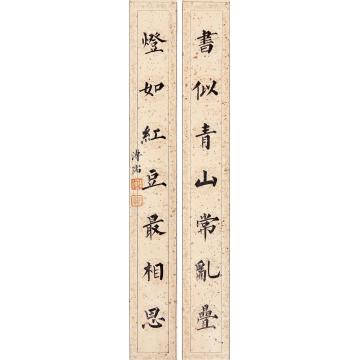 書似青山常亂疊
燈如紅豆最相思
溥儒